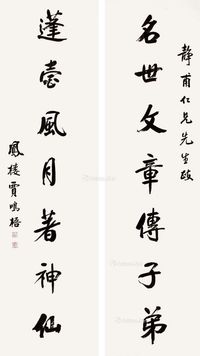 靜甫仁兄先生政
名世文章傳子弟
蓬壺風月著神仙
鳳樓賈鳴梧